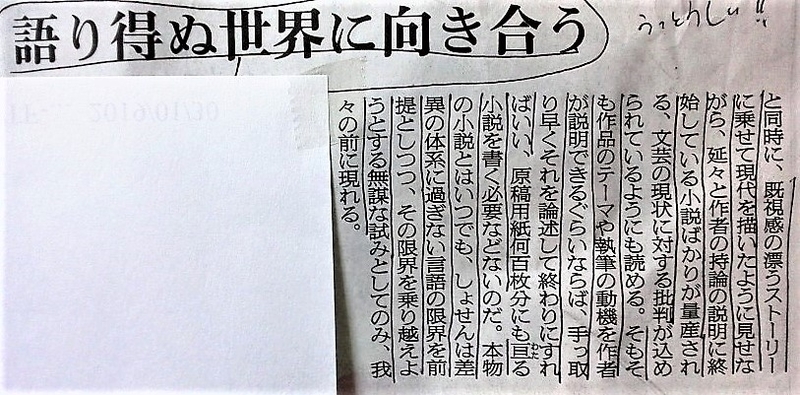 語り得ぬ世界に向き合う
うっとうしい!!
と同時に、既視感の漂うストーリー
に乗せて現代を描いたように見せな
がら、延々と作者の持論の説明に終
始している小説ばかりが量産され
る、文芸の現状に対する批判が込め
られているようにも読める。そもそ
も作品のテーマや執筆の動機を作者
が説明できるぐらいならば、手っ取
り早くそれを論述して終わりにすれ
ばいい、原稿用紙何百枚分にも亘る
わた
小説を書く必要などないのだ。本物
の小説とはいつでも、しょせんは差
異の体系に過ぎない言語の限界を前
提としつつ、その限界を乗り越えよ
うとする無謀な試みとしてのみ、我
々の前に現れる。
2019/01/30